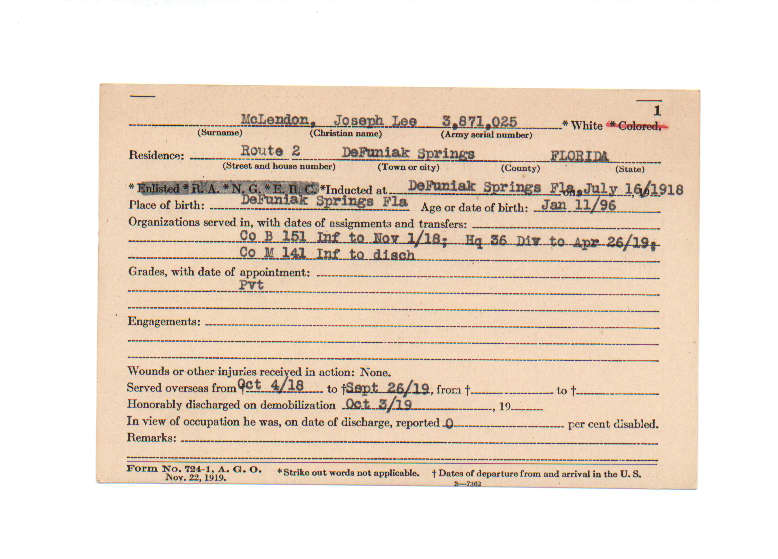 1
McLendon, Joseph Lee 3,871,025 * White * Colored.
(Surname) (Christian name) (Army serial number)
Residence: Route 2 DeFuniak Springs FLORIDA
(Street and house number) (Town or city) (County) (State)
* Enlisted * R. A. * N. G. * E. R. C. *Inducted at DeFuniak Springs Fla. on July 16, 1918
Place of birth: DeFuniak Springs Fla Age or date of birth: Jan 11/96
Organizations served in, with dates of assignments and transfers:
Co B 151 Inf to Nov 1/18; Hq 36 Div to Apr 26/19;
Co M 141 Inf to disch
Grades, with date of appointment:
Pvt
Engagements:
Wounds or other injuries received in action: None.
Served overseas from † Oct 4/18 to † Sept 26/19, from † to †
Honorably discharged on demobilization Oct 3/19, 19
In view of occupation he was, on date of discharge, reported 0 per cent disabled.
Remarks:
Form No. 724-1, A. G. O. *Strike out words not applicable. † Dates of departure from and arrival in the U. S.
Nov. 22, 1919. 3—7362